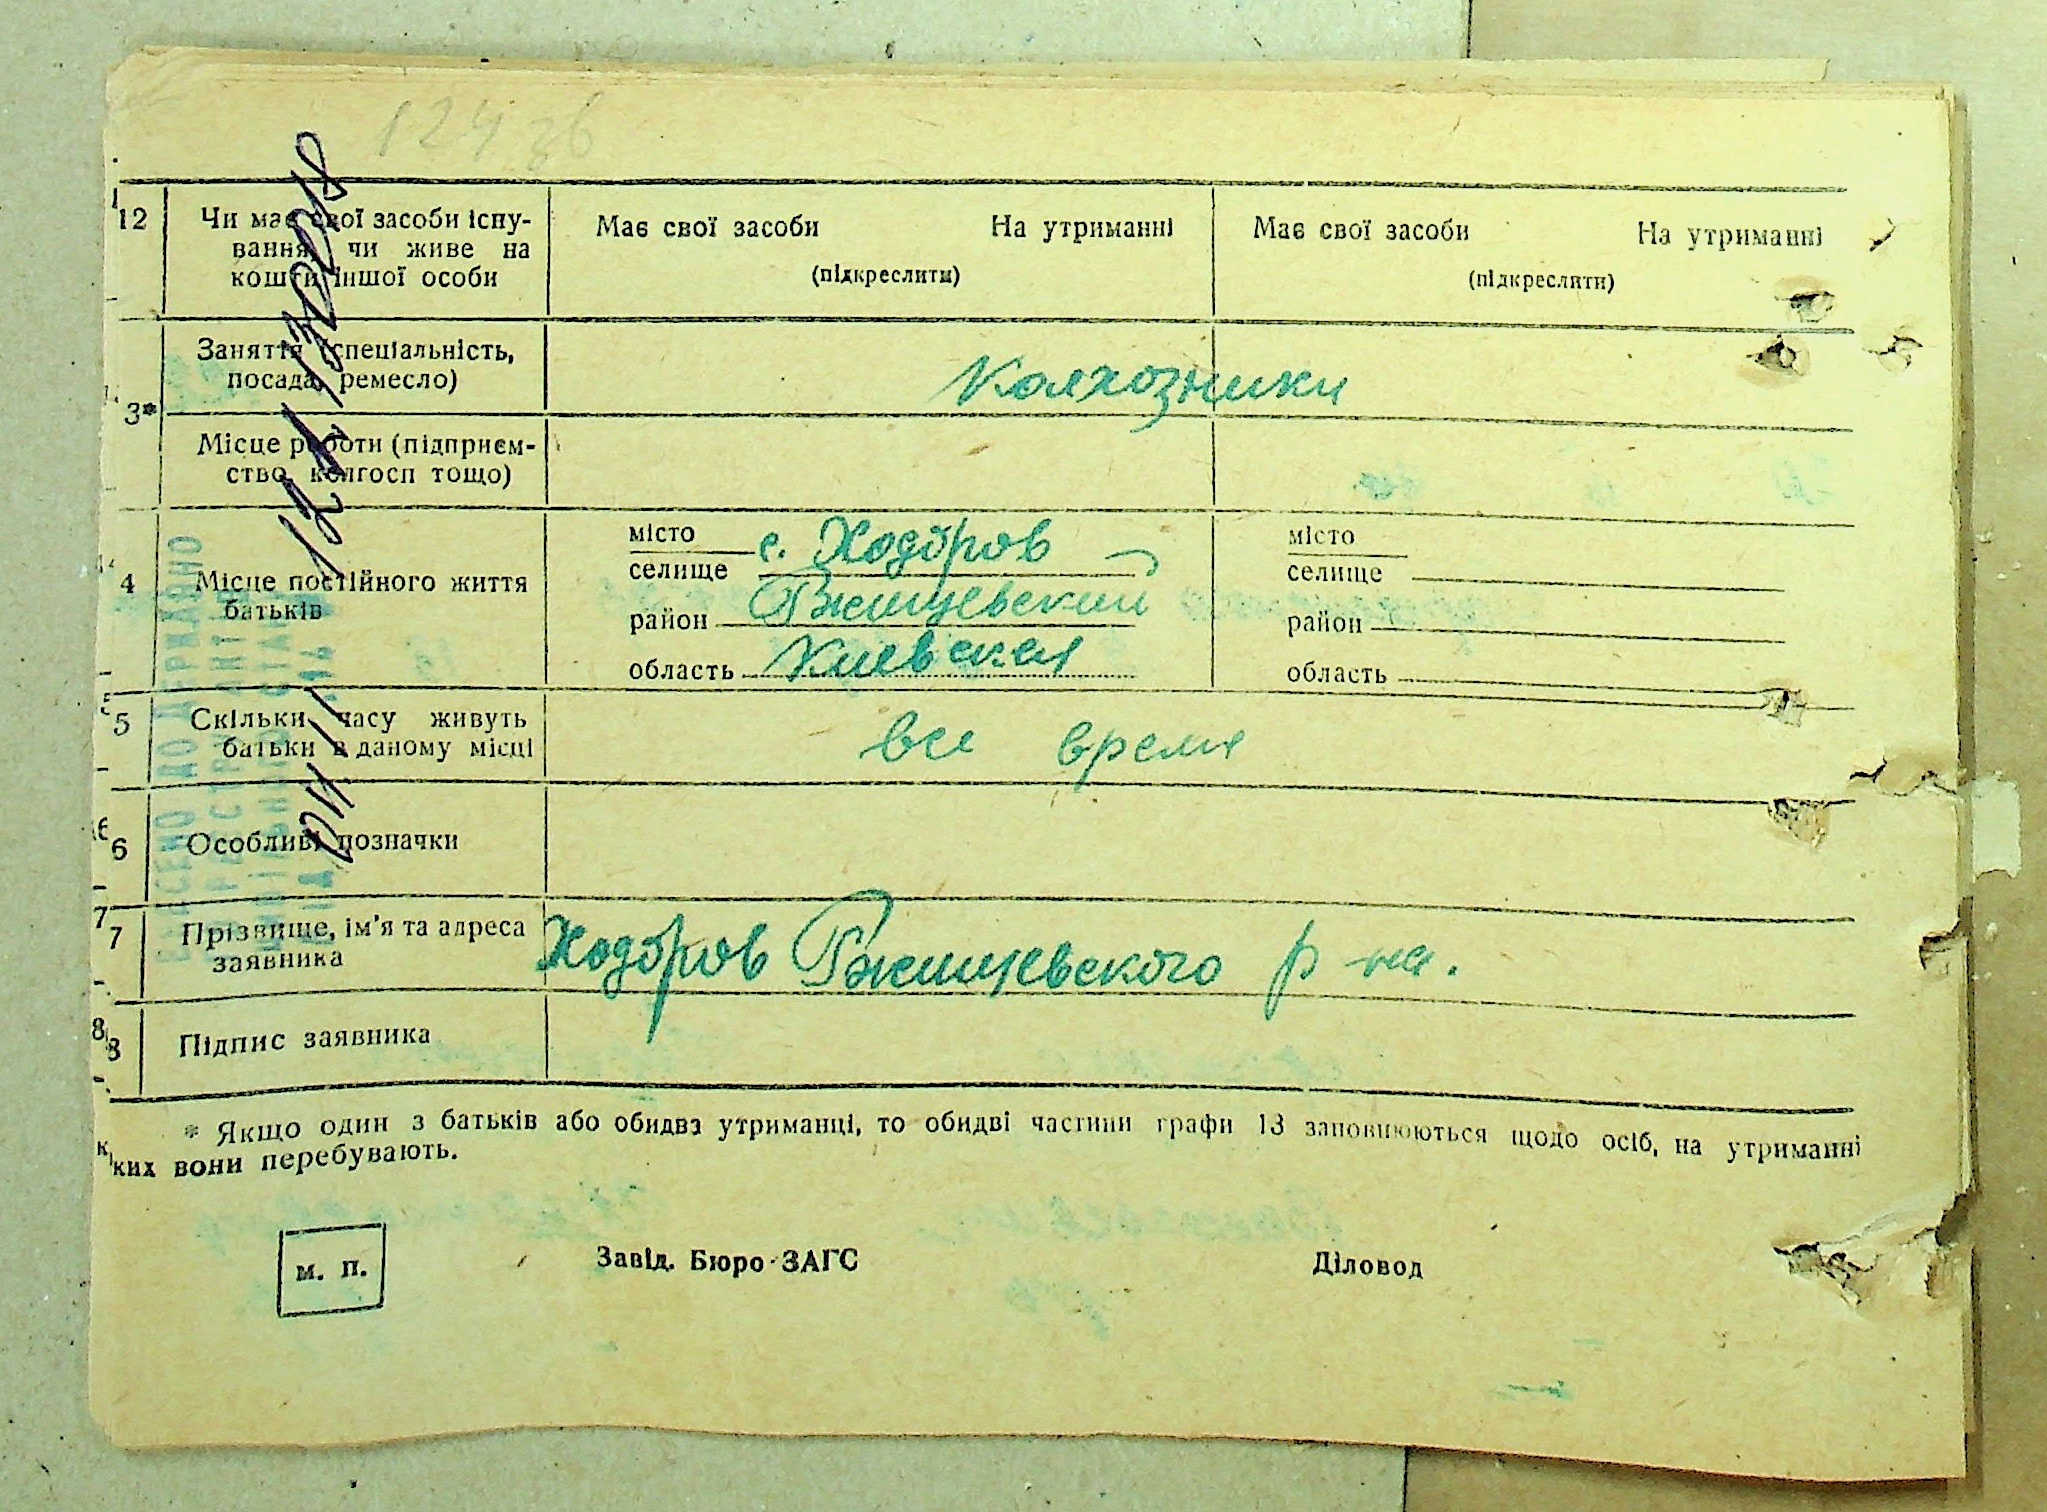 124 зв
12 Чи має свої засоби існу- Має свої засоби На утриманні Має свої засоби На утриманні
вання, чи живе на
кошти іншої особи (підкреслити) (підкреслити)
Заняття (спеціальність,
посада, ремесло) Колхозники
3*
Місце роботи (підприєм-
ство, колгосп тощо)
місто с. Ходоров місто
селище селище
4 Місце постійного життя
батьків
район Ржищевский район
область Киевская область
5 Скільки часу живуть
батьки в даному місці все время
6 Особливі позначки
7 Прізвище, ім'я та адреса
заявника Ходоров Ржищевского р-на.
8 Підпис заявника
* Якщо один з батьків або обидва утриманці, то обидві частини графи 13 заповнюються щодо осіб, на утриманні
ких вони перебувають.
м. п. Завід. Бюро ЗАГС Діловод